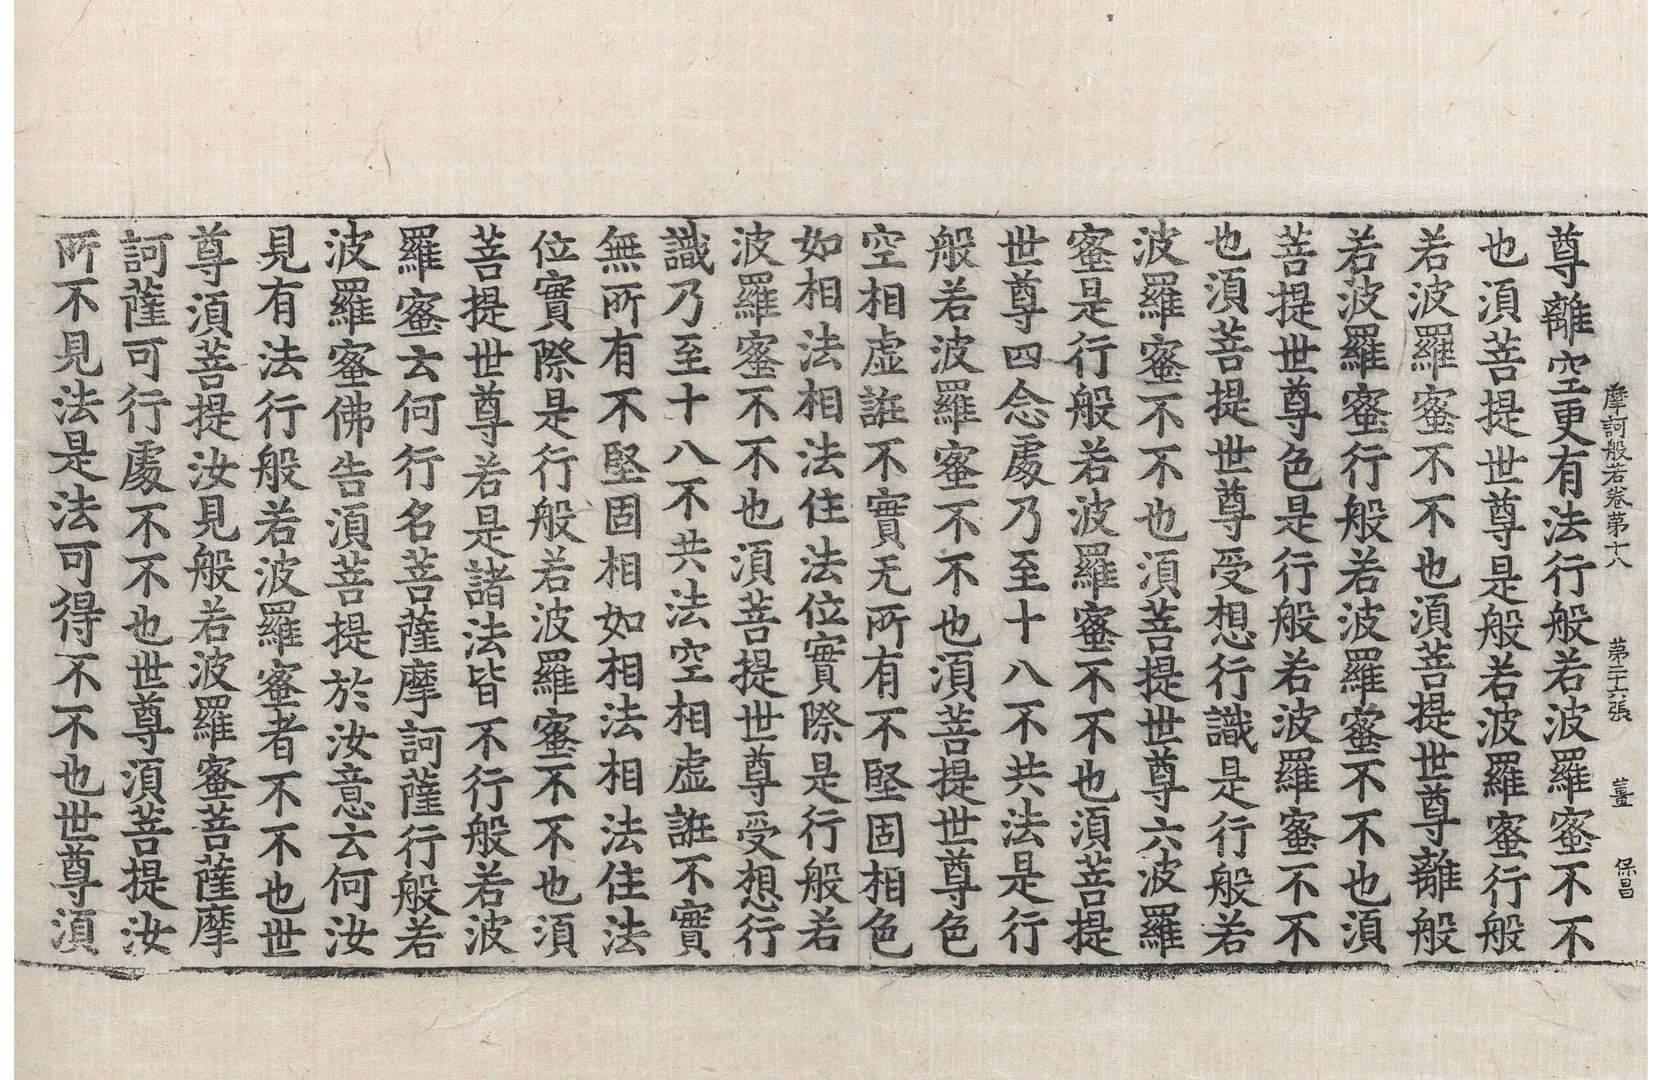 摩訶般若卷苐十八 苐二十六張 薑 保昌
尊離空更有法行般若波羅蜜不不
也須菩提世尊是般若波羅蜜行般
若波羅蜜不不也須菩提世尊離般
若波羅蜜行般若波羅蜜不不也須
菩提世尊色是行般若波羅蜜不不
也須菩提世尊受想行識是行般若
波羅蜜不不也須菩提世尊六波羅
蜜是行般若波羅蜜不不也須菩提
世尊四念處乃至十八不共法是行
般若波羅蜜不不也須菩提世尊色
空相虛誑不實无所有不堅固相色
如相法相法住法位實際是行般若
波羅蜜不不也須菩提世尊受想行
識乃至十八不共法空相虛誑不實
無所有不堅固相如相法相法住法
位實際是行般若波羅蜜不不也須
菩提世尊若是諸法皆不行般若波
羅蜜云何行名菩薩摩訶薩行般若
波羅蜜佛告須菩提於汝意云何汝
見有法行般若波羅蜜者不不也世
尊須菩提汝見般若波羅蜜菩薩摩
訶薩可行處不不也世尊須菩提汝
所不見法是法可得不不也世尊須